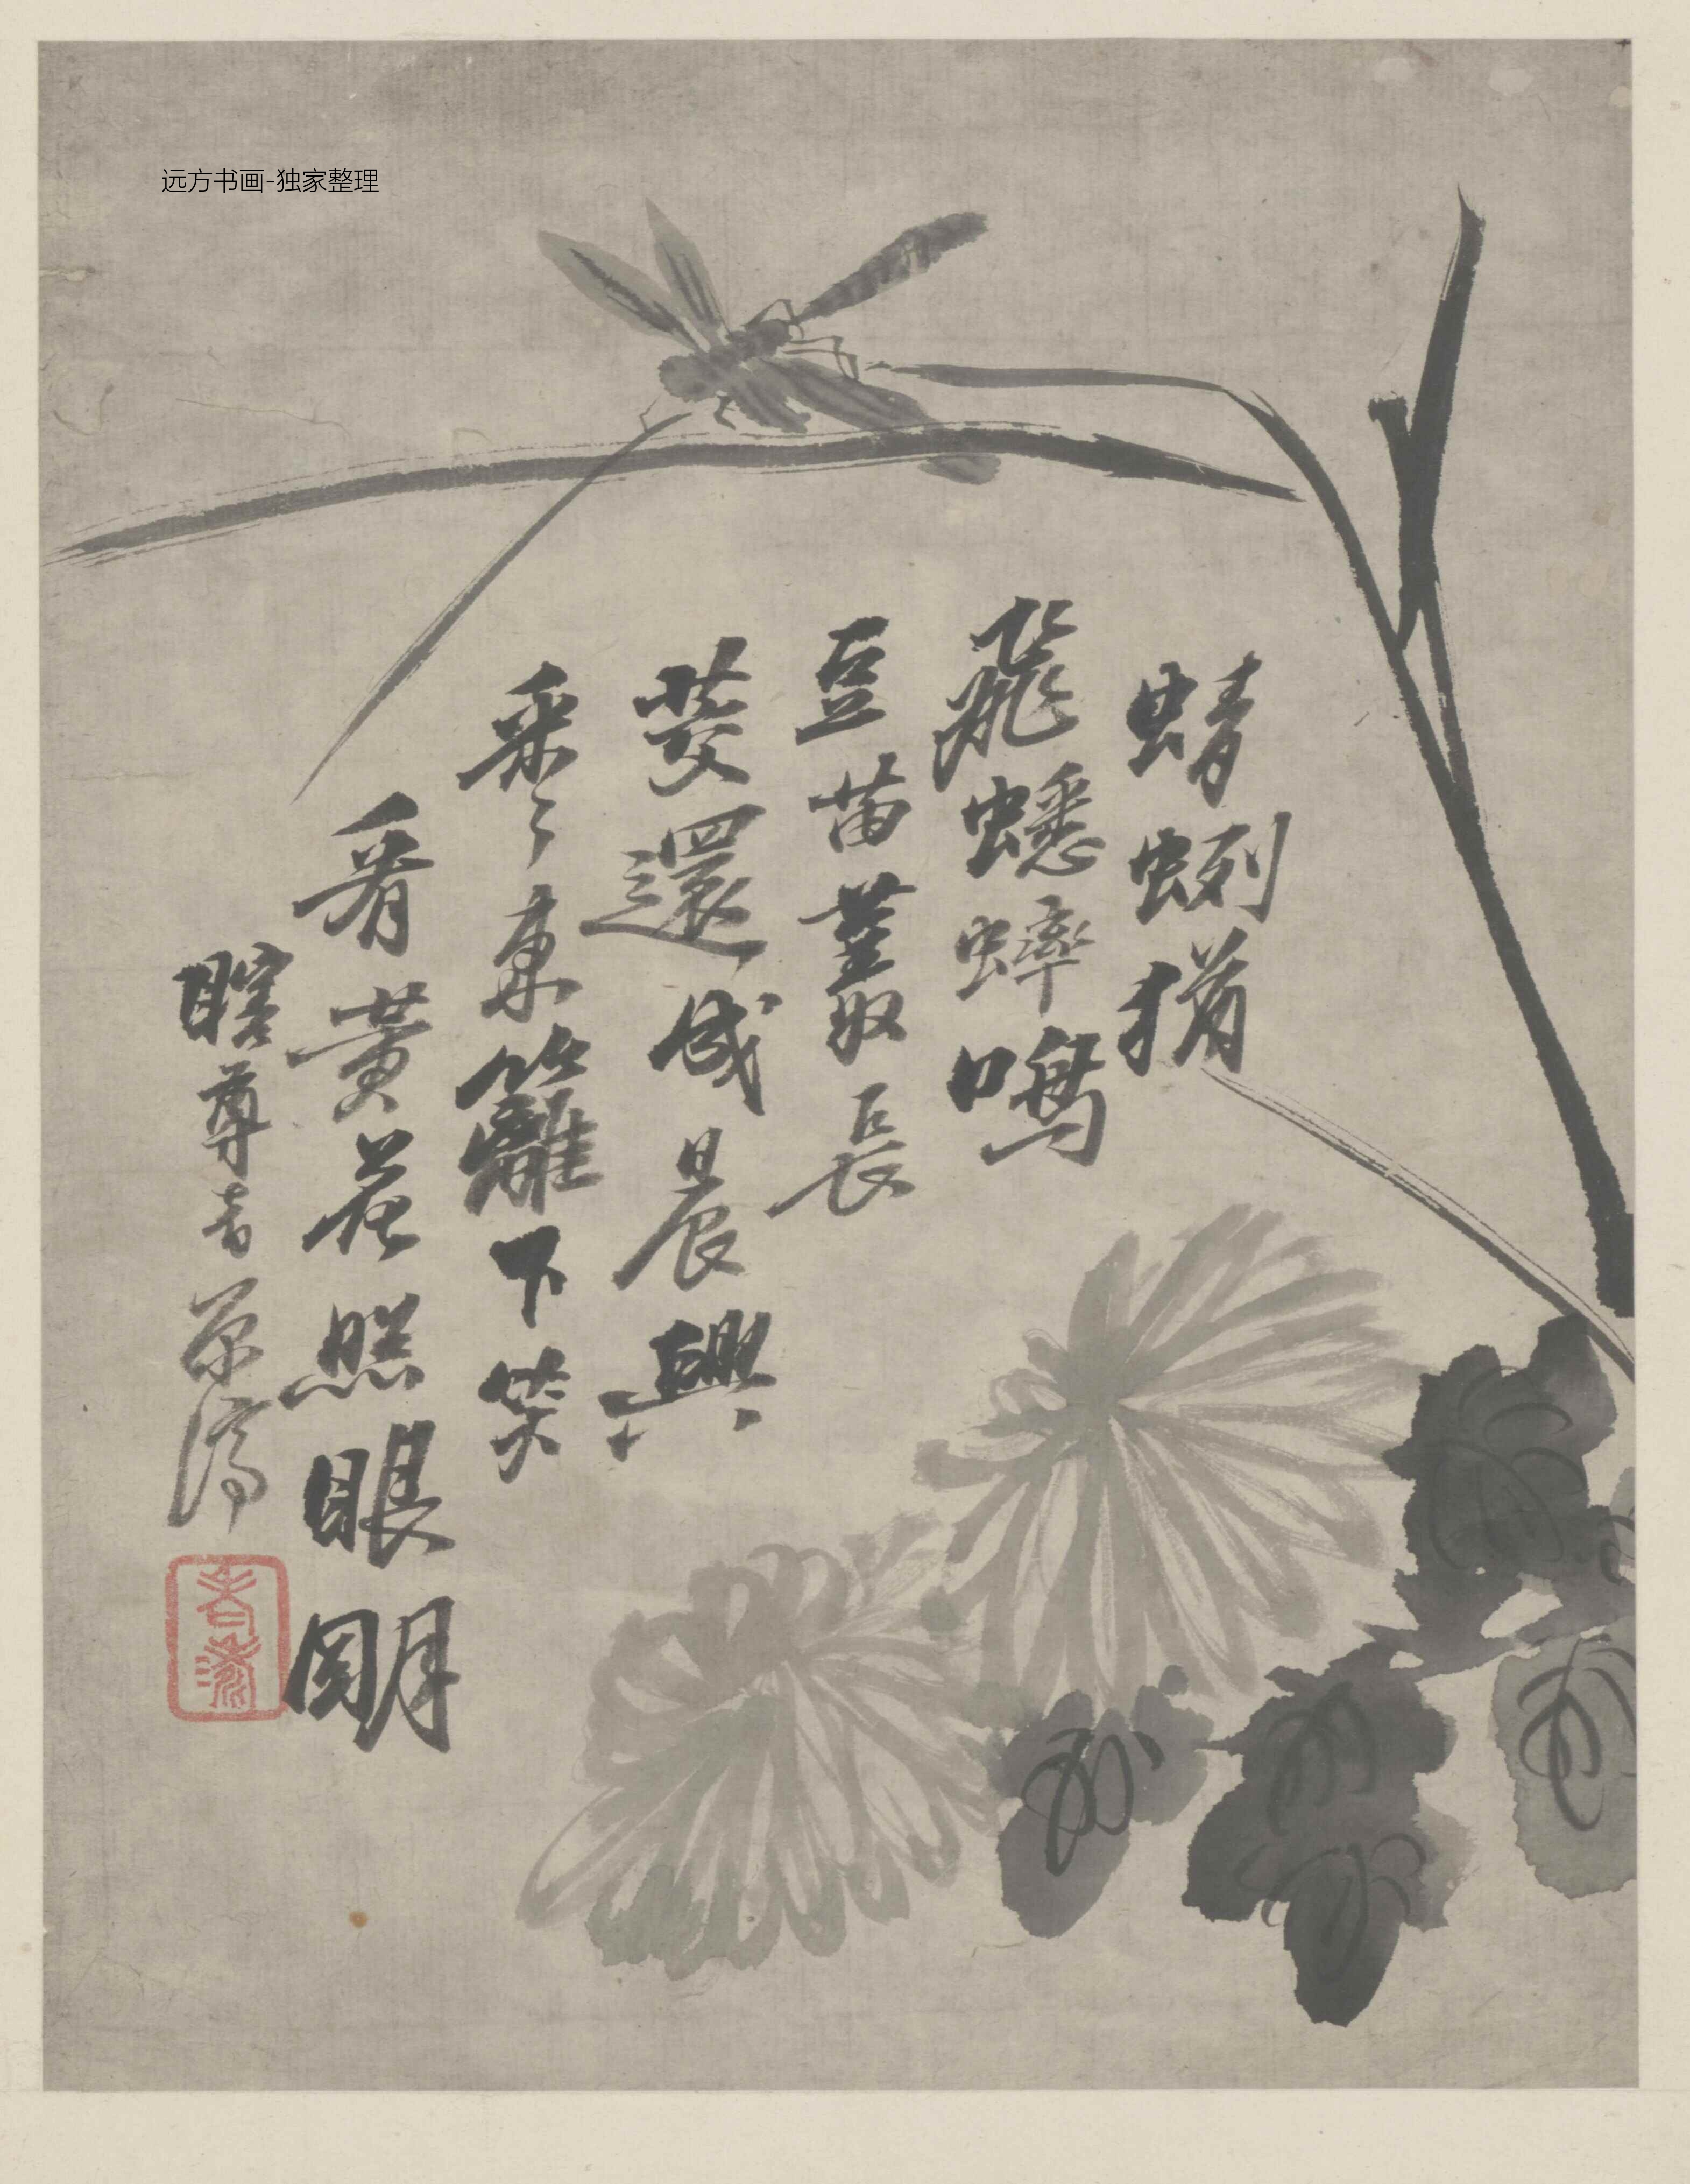 远方书画-独家整理
蜻蜊猶
飛蟋蟀鳴
豆苗叢長
菱還成晨興
采々東籬下笑
看黃花照眼朙
瞎尊者原濟
老濤